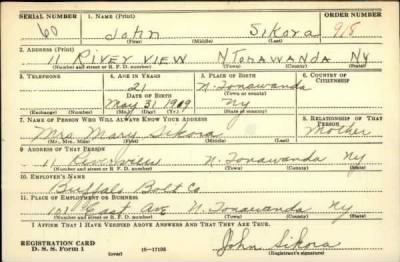 SERIAL NUMBER 1. NAME (Print) ORDER NUMBER
60 John Sikora 915
(First) (Middle) (Last)
2. ADDRESS (Print)
11 RIVER VIEW N TONAWANDA NY
(Number and street or R. F. D. number) (Town) (County) (State)
3. TELEPHONE 4. AGE IN YEARS 5. PLACE OF BIRTH 6. COUNTRY OF CITIZENSHIP
21 N. Tonawanda
DATE OF BIRTH (Town or county)
May 31 1919 Ny
(Exchange) (Number) (Mo.) (Day) (Yr.) (State or country)
7. NAME OF PERSON WHO WILL ALWAYS KNOW YOUR ADDRESS 8. RELATIONSHIP OF THAT PERSON
Mrs. Mary Sikora Mother
(Mr., Mrs., Miss) (First) (Middle) (Last)
9. ADDRESS OF THAT PERSON
11 Riverview N. Tonawanda NY
(Number and street or R. F. D. number) (Town) (County) (State)
10. EMPLOYER'S NAME
Buffalo Bolt Co
11. PLACE OF EMPLOYMENT OR BUSINESS
101 East Ave N. Tonawanda NY
(Number and street or R. F. D. number) (Town) (County) (State)
I AFFIRM THAT I HAVE VERIFIED ABOVE ANSWERS AND THAT THEY ARE TRUE.
REGISTRATION CARD
D. S. S. Form 1 (over) 16—17105 John Sikora
(Registrant's signature)